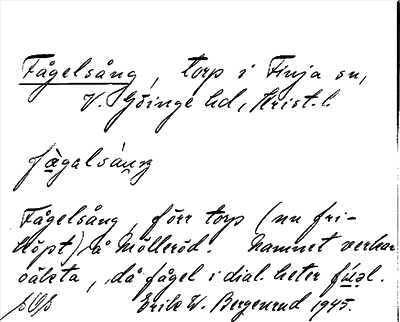 Fågelsång, torp i Finja sn,
V. Göinge hd, Krist. l.
fågalsáŋ
Fågelsång, förr torp (nu fri-
köpt) å Mölleröd. Namnet verkar
oäkta, då fågel i dial. heter
Erik W. Bergenrud 1945.